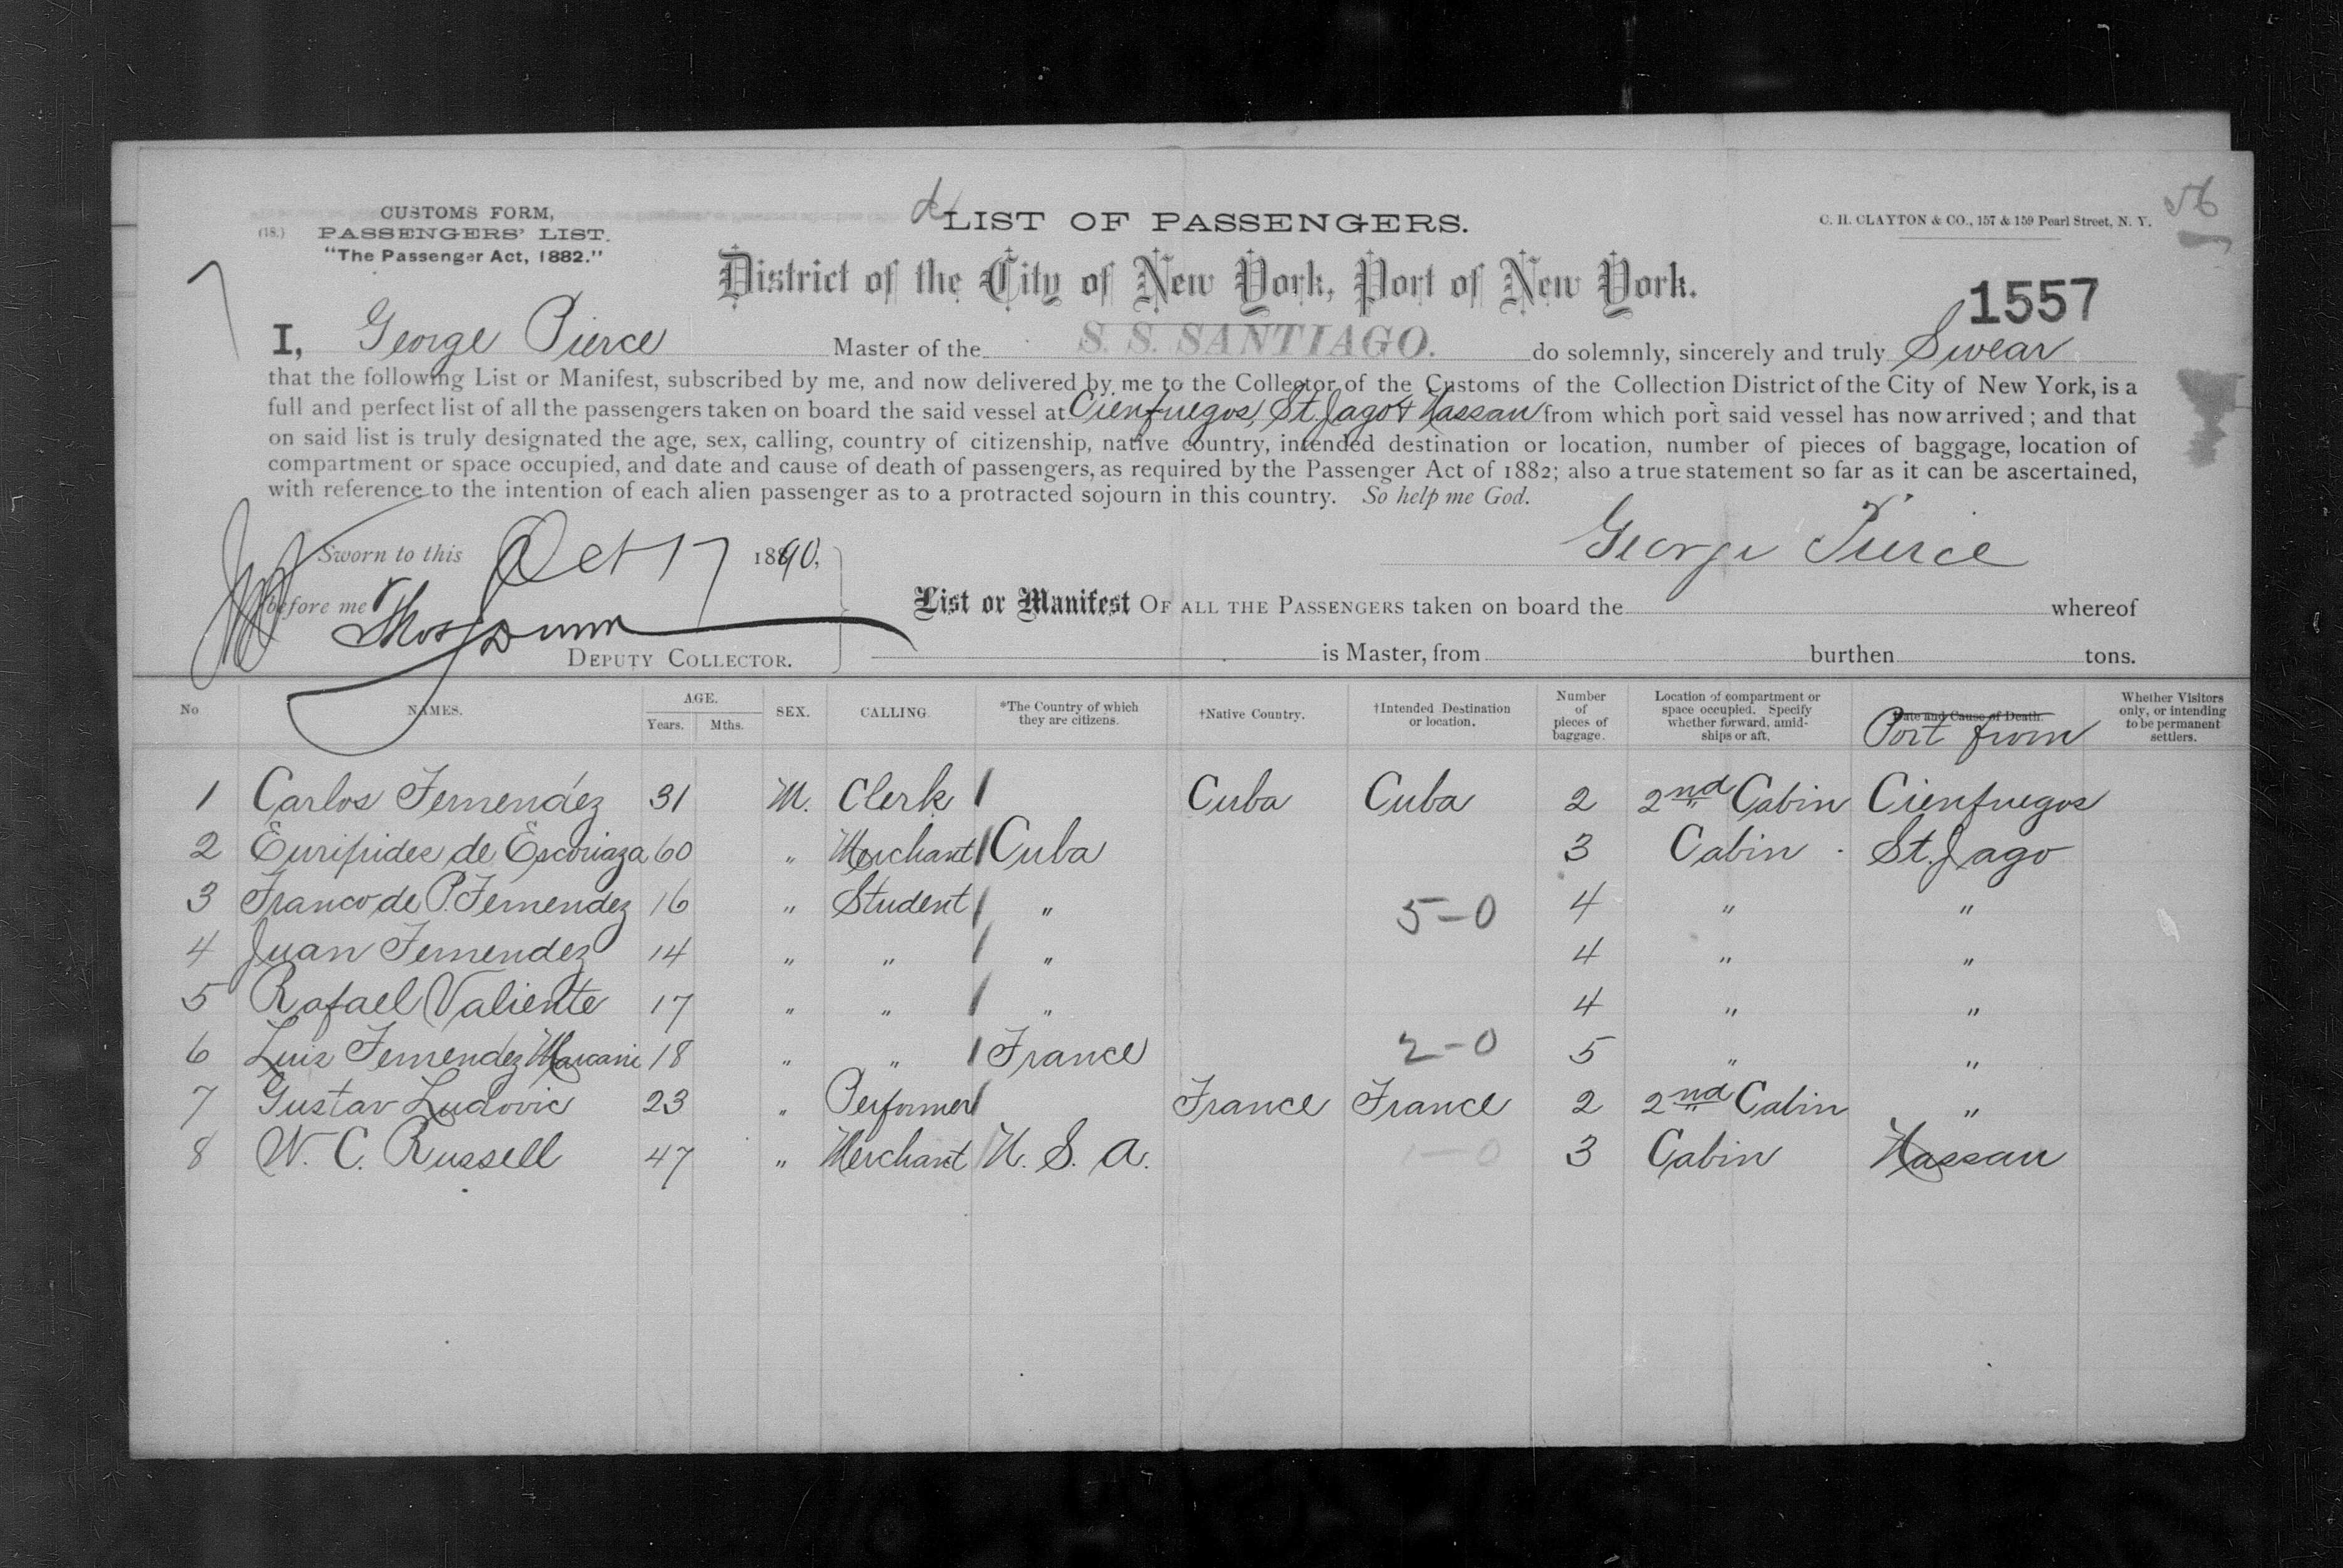 CUSTOMS FORM,
(18.) PASSENGERS' LIST.
"The Passenger Act, 1882."
LIST OF PASSENGERS.
C. H. CLAYTON & CO., 157 & 159 Pearl Street, N. Y.
56
District of the City of New York, Port of New York.
1557
I, George Pierce Master of the S. S. SANTIAGO. do solemnly, sincerely and truly Swear
that the following List or Manifest, subscribed by me, and now delivered by me to the Collector of the Customs of the Collection District of the City of New York, is a
full and perfect list of all the passengers taken on board the said vessel at Cienfuegos, St. Jago & Nassau from which port said vessel has now arrived; and that
on said list is truly designated the age, sex, calling, country of citizenship, native country, intended destination or location, number of pieces of baggage, location of
compartment or space occupied, and date and cause of death of passengers, as required by the Passenger Act of 1882; also a true statement so far as it can be ascertained,
with reference to the intention of each alien passenger as to a protracted sojourn in this country. So help me God.
George Pierce
Sworn to this Oct 17 1890,
before me Thos Dunn
DEPUTY COLLECTOR.
List or Manifest OF ALL THE PASSENGERS taken on board the whereof
is Master, from burthen tons.
No NAMES. AGE. Years. Mths. SEX. CALLING. *The Country of which they are citizens. †Native Country. †Intended Destination or location. Number of pieces of baggage. Location of compartment or space occupied. Specify whether forward, amidships or aft. Date and Cause of Death. Port from Whether Visitors only, or intending to be permanent settlers.
1 Carlos Fernendez 31 M. Clerk Cuba Cuba 2 2nd Cabin Cienfuegos
2 Euripides de Escoriaza 60 " Merchant Cuba 3 Cabin St. Jago
3 Franco de P. Fernendez 16 " Student " 5-0 4 " "
4 Juan Fernendez 14 " " " 4 " "
5 Rafael Valiente 17 " " " 4 " "
6 Luis Fernendez 18 " " France 2-0 5 " "
7 Gustav Ludovic 23 " Performer France France 2 2nd Cabin "
8 W. C. Russell 47 " Merchant U. S. A. 1-0 3 Cabin Nassau